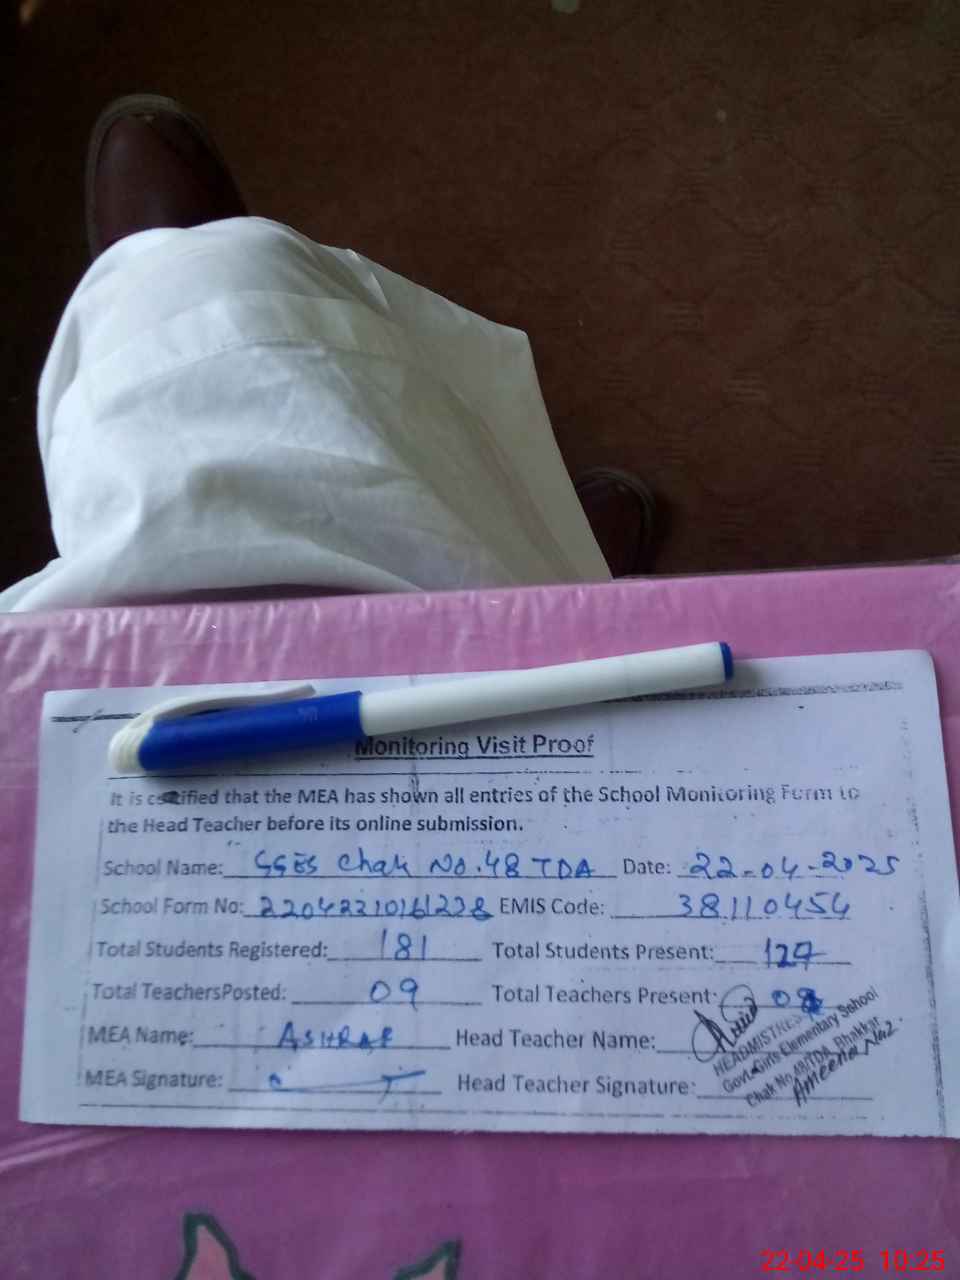 Monitoring Visit Proof
It is certified that the MEA has shown all entries of the School Monitoring Form to
the Head Teacher before its online submission.
School Name: GGES Chak No.48 TDA Date: 22-04-2025
School Form No: EMIS Code: 38110454
Total Students Registered: 181 Total Students Present: 127
Total TeachersPosted: 09 Total Teachers Present: 08
MEA Name: ASHRAF Head Teacher Name:
MEA Signature: Head Teacher Signature:
HEADMISTRESS
Govt. Girls Elementary School
Chak No.48/TDA, Bhakkar
22-04-25 10:25